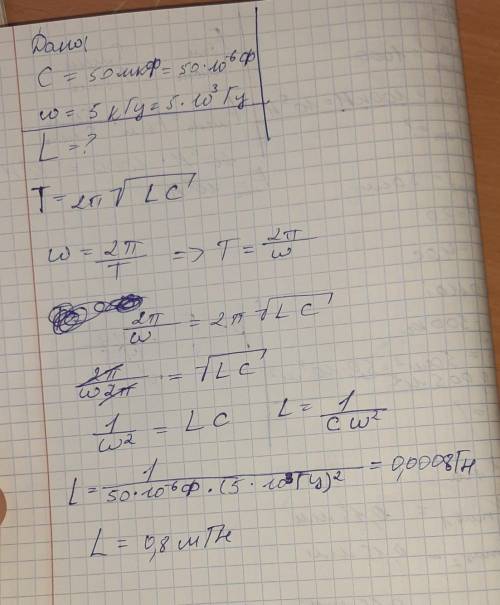 Дано:
C = 50 мкФ = 50·10⁻⁶ Ф
ω = 5 кГц = 5·10³ Гц
L = ?
T = 2π √LC
ω = 2π/T => T = 2π/ω
2π/ω = 2π √LC
2π/ω2π = √LC
1/ω² = LC L = 1/Cω²
L = 1/50·10⁻⁶Ф·(5·10³Гц)² = 0,0008Гн
L = 0,8 мГн